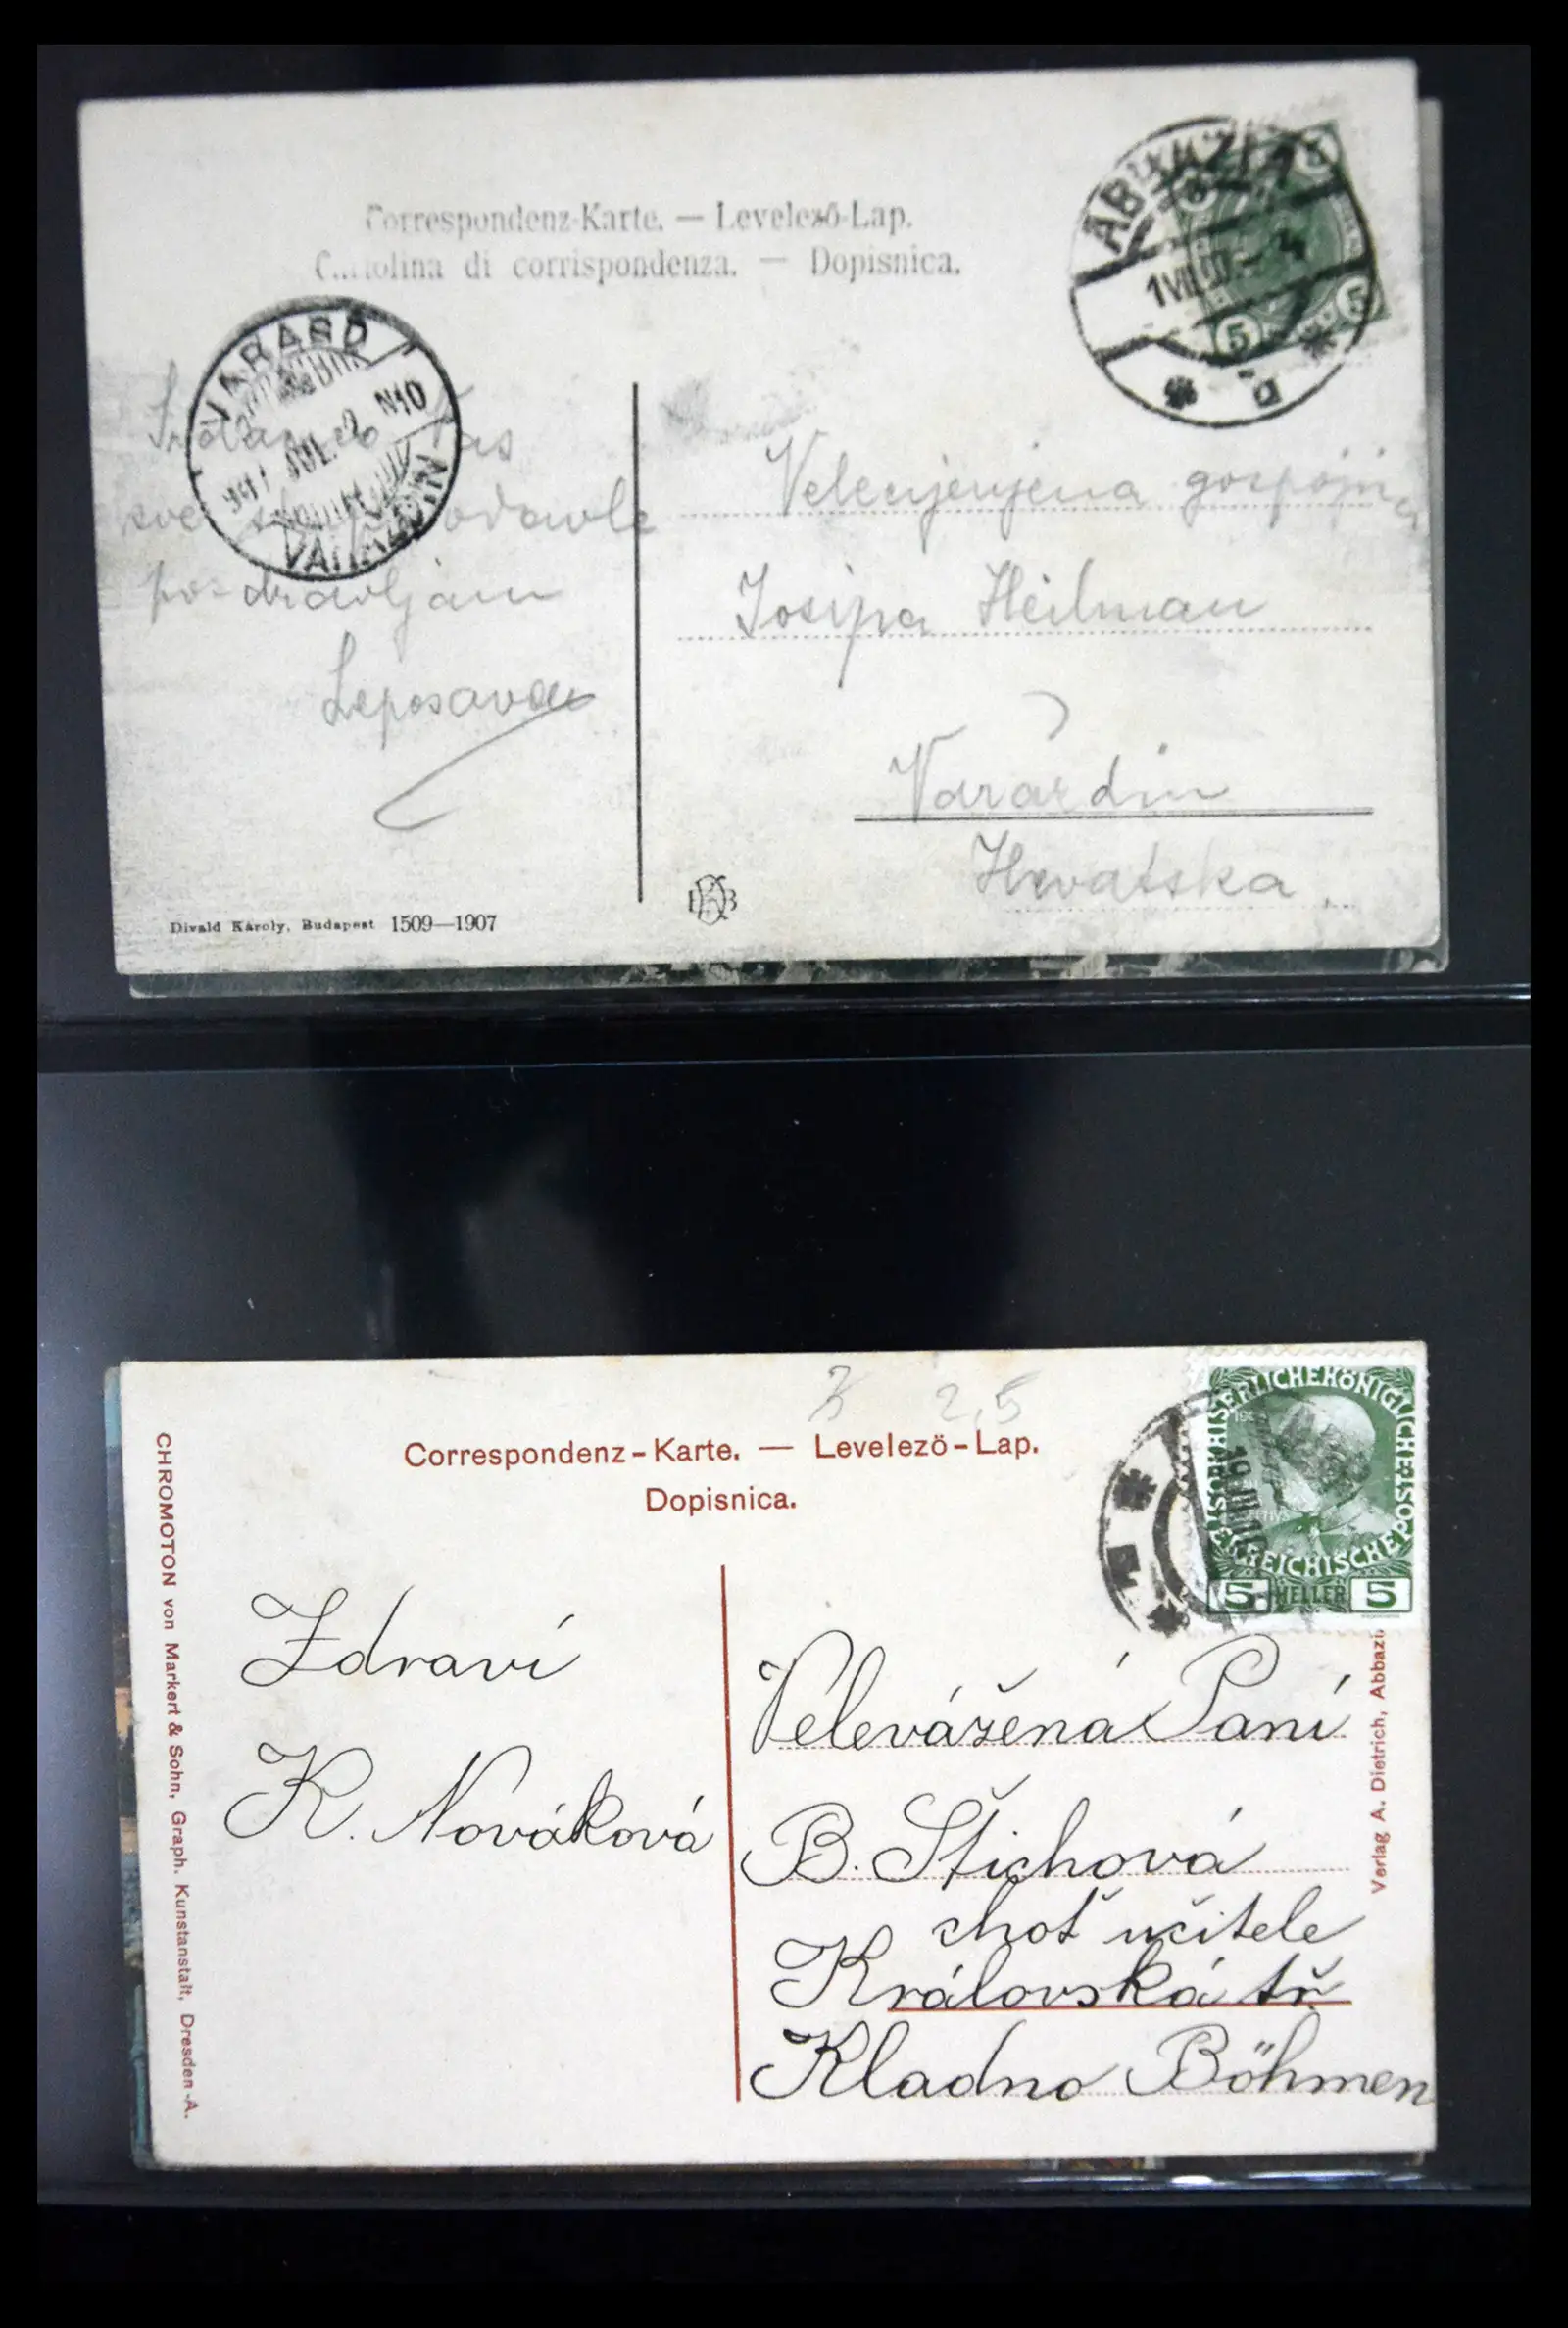 Correspondenz-Karte. — Levelező-Lap.
Cartolina di corrispondenza. — Dopisnica.
ABBAZIA
1 VII
5
5
5
VARASD
911 JUL. 2 N10
VARAŽDIN
Vas
sve odavle
pozdravljam
Leposava
Velecijenjena gospojica
Josipa Heilman
Varaždin
Hrvatska
Divald Károly, Budapest 1509—1907
3 2,5
Correspondenz-Karte. — Levelező-Lap.
Dopisnica.
KAISERLICHE KÖNIGLICHE ÖSTERREICHISCHE POST
5 HELLER 5
19 III 10
CHROMOTON von Markert & Sohn, Graph. Kunstanstalt, Dresden-A.
Zdraví
K. Nováková
Velevážená Paní
B. Štichová
choť učitele
Královská tř
Kladno Böhmen
Verlag A. Dietrich, Abbazi